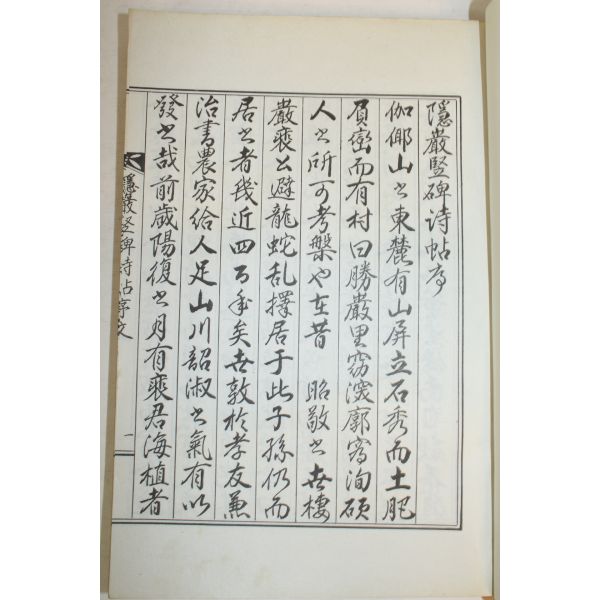 隱巖竪碑詩帖序
伽倻山之東麓有山屏立石秀而土肥
負巒而有村曰勝巖里窈深廓窩洵碩
人之所可考槃也在昔 昭敬之世棲
巖裵公避龍蛇乱擇居于此子孫仍而
居之者幾近四百年矣世敦於孝友兼
治書農家給人足山川韶淑之氣有以
發之哉前歲陽復之月有裵君海植者
隱巖竪碑詩帖序文
一